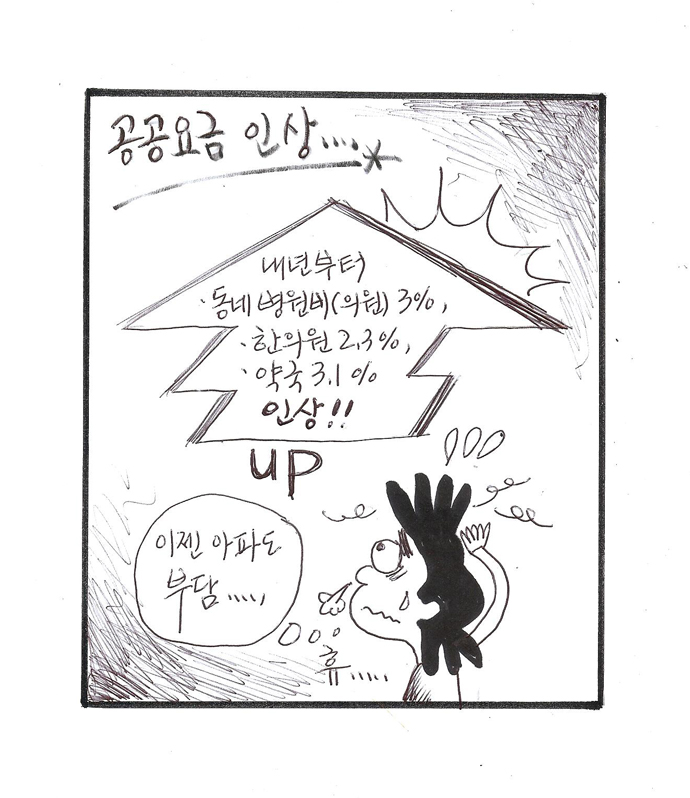 공공요금 인상....
내년부터
·동네 병원비(의원) 3%,
·한의원 2.3%,
·약국 3.1%
인상!!
UP
이젠 아파도
부담.....,
휴.....